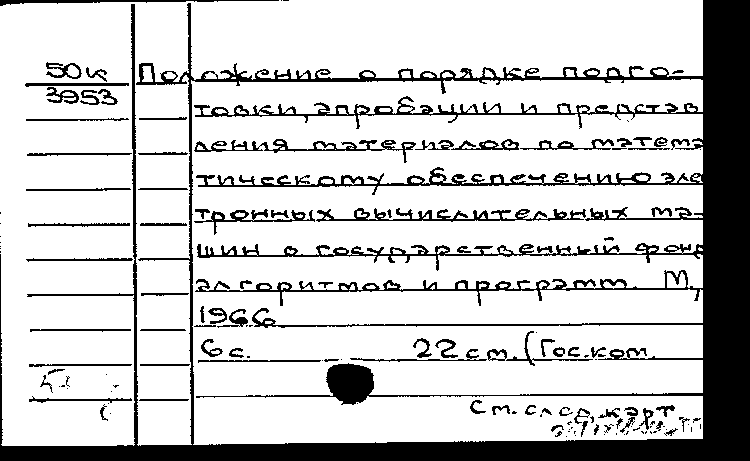 50к Положение о порядке подго-
3953 товки, апробации и представ
ления материалов по матема
тическому обеспечению элек
тронных вычислительных ма-
шин в государственный фонд
алгоритмов и программ. М.,
1966.
6 с. 22 см. (Гос. ком.
См. след. карт